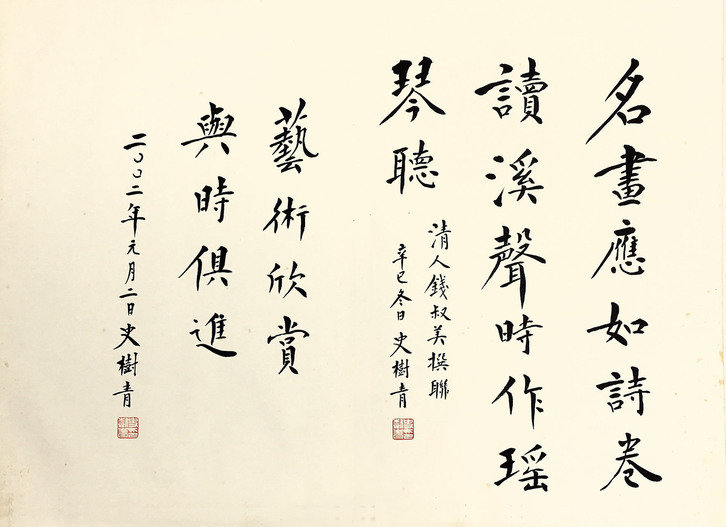 名畫應如詩卷
讀溪聲時作瑶
琴聽
清人錢叔美撰聯
辛巳冬日 史樹青
藝術欣賞
與時俱進
二〇〇二年元月二日史樹青